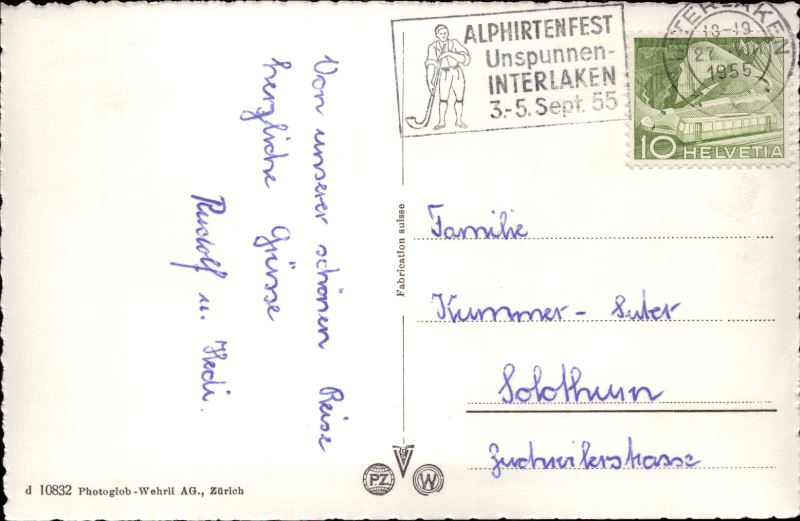 ALPHIRTENFEST
Unspunnen-
INTERLAKEN
3.-5. Sept. 55
INTERLAKEN
18-19
27
1955
10 HELVETIA
Von unserer schönen Reise
herzliche Grüsse
Rudolf u. Hedi.
Fabrication suisse
Familie
Kummer-Suter
Solothurn
Zuchwilerstrasse
PZ
W
d 10832 Photoglob-Wehrli AG., Zürich